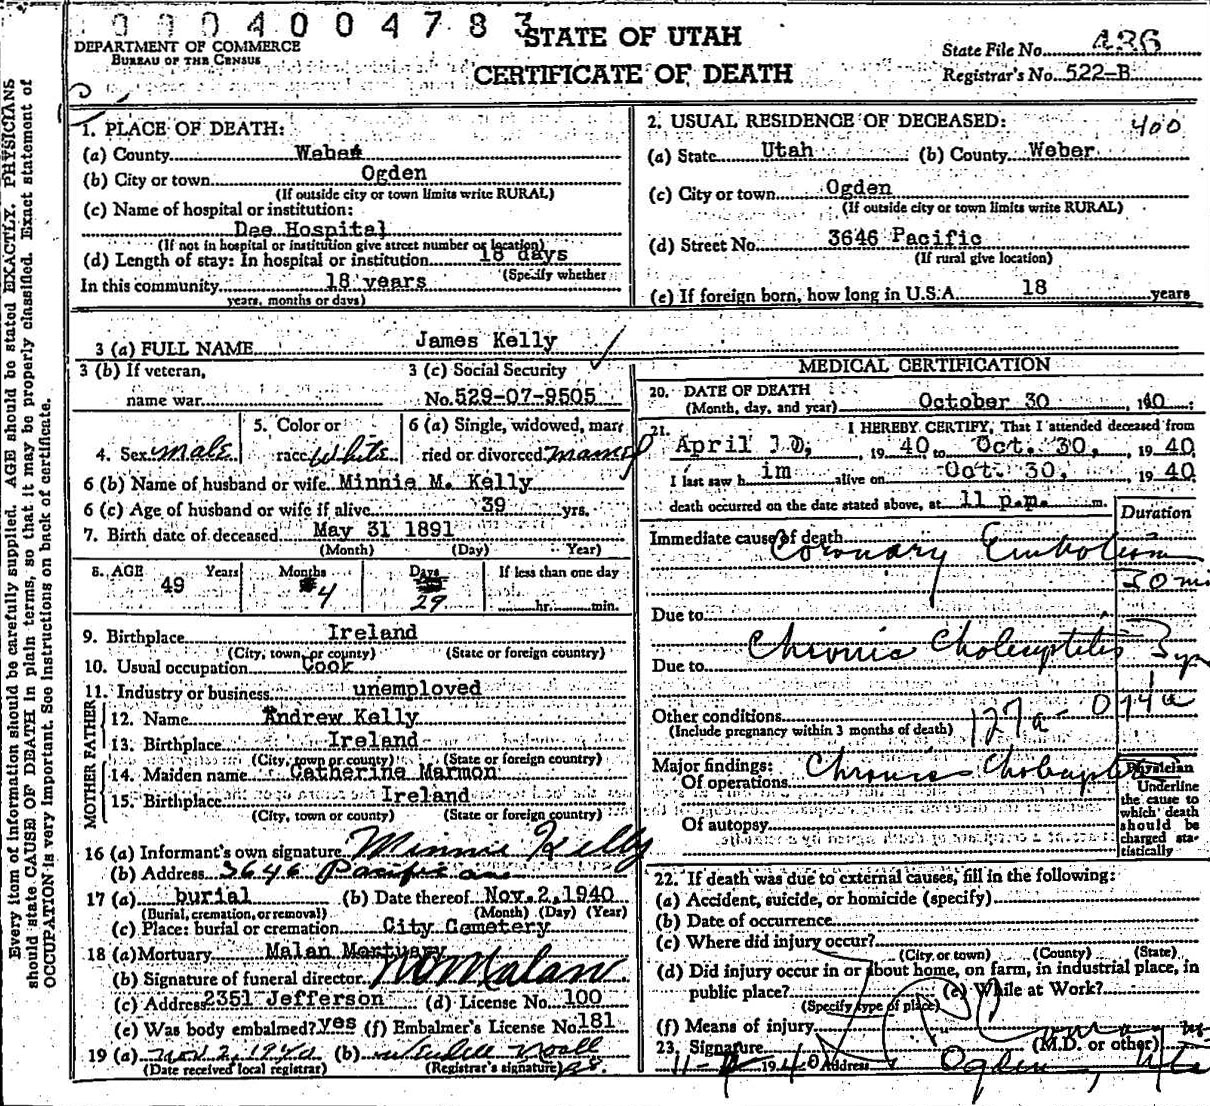 0 0 0 4 0 0 4 7 8 3
DEPARTMENT OF COMMERCE
BUREAU OF THE CENSUS
STATE OF UTAH
CERTIFICATE OF DEATH
State File No. 436
Registrar's No. 522-B
Every item of information should be carefully supplied. AGE should be stated EXACTLY. PHYSICIANS
should state CAUSE OF DEATH in plain terms, so that it may be properly classified. Exact statement of
OCCUPATION is very important. See instructions on back of certificate.
1. PLACE OF DEATH:
(a) County Weber
(b) City or town Ogden
(If outside city or town limits write RURAL)
(c) Name of hospital or institution:
Dee Hospital
(If not in hospital or institution give street number or location)
(d) Length of stay: In hospital or institution 18 days
(Specify whether
In this community 18 years
years, months or days)
2. USUAL RESIDENCE OF DECEASED:
400
(a) State Utah (b) County Weber
(c) City or town Ogden
(If outside city or town limits write RURAL)
(d) Street No. 3646 Pacific
(If rural give location)
(e) If foreign born, how long in U.S.A. 18 years
3 (a) FULL NAME James Kelly
3 (b) If veteran,
name war
3 (c) Social Security
No. 529-07-9505
4. Sex male
5. Color or
race White
6 (a) Single, widowed, mar
ried or divorced married
6 (b) Name of husband or wife Minnie M. Kelly
6 (c) Age of husband or wife if alive 39 yrs.
7. Birth date of deceased May 31 1891
(Month) (Day) Year)
8. AGE Years Months Days If less than one day
49 4 29 hr. min.
9. Birthplace Ireland
(City, town, or county) (State or foreign country)
10. Usual occupation Cook
11. Industry or business unemployed
FATHER
12. Name Andrew Kelly
13. Birthplace Ireland
(City, town or county) (State or foreign country)
MOTHER
14. Maiden name Catherine Marmon
15. Birthplace Ireland
(City, town or county) (State or foreign country)
16 (a) Informant's own signature Minnie Kelly
(b) Address 3646 Pacific ave
17 (a) burial (b) Date thereof Nov. 2, 1940
(Burial, cremation, or removal) (Month) (Day) (Year)
(c) Place: burial or cremation City Cemetery
18 (a) Mortuary Malan Mortuary
(b) Signature of funeral director Malan
(c) Address 2351 Jefferson (d) License No. 100
(e) Was body embalmed? yes (f) Embalmer's License No. 181
19 (a) Nov 2, 1940 (b)
(Date received local registrar) (Registrar's signature)
MEDICAL CERTIFICATION
20. DATE OF DEATH
(Month, day, and year) October 30, 1940
21. I HEREBY CERTIFY, That I attended deceased from
April 10, 1940 to Oct. 30, 1940
I last saw him alive on Oct. 30, 1940
death occurred on the date stated above, at 11 p.m. m.
Duration
Immediate cause of death Coronary Embolism
30 mi
Due to
Chronic Cholecystitis 3 yr
Due to
Other conditions 127a
(Include pregnancy within 3 months of death)
Major findings:
Of operations Chronic
Of autopsy
Physician
Underline
the cause to
which death
should be
charged sta-
tistically
22. If death was due to external causes, fill in the following:
(a) Accident, suicide, or homicide (specify)
(b) Date of occurrence
(c) Where did injury occur?
(City or town) (County) (State)
(d) Did injury occur in or about home, on farm, in industrial place, in
public place? (e) While at Work?
(Specify type of place)
(f) Means of injury
23. Signature (M.D. or other)
1940 Address Ogden, Utah